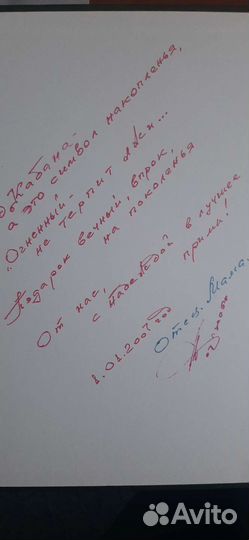 Кабана -
а это символ накопленья,
"Огненный -
не терпит лжи...
Подарок вечный, впрок,
на поколенья
От нас,
с надеждой в лучшее
прими!
1.01.2007 год
Отец. Мама.
Avito